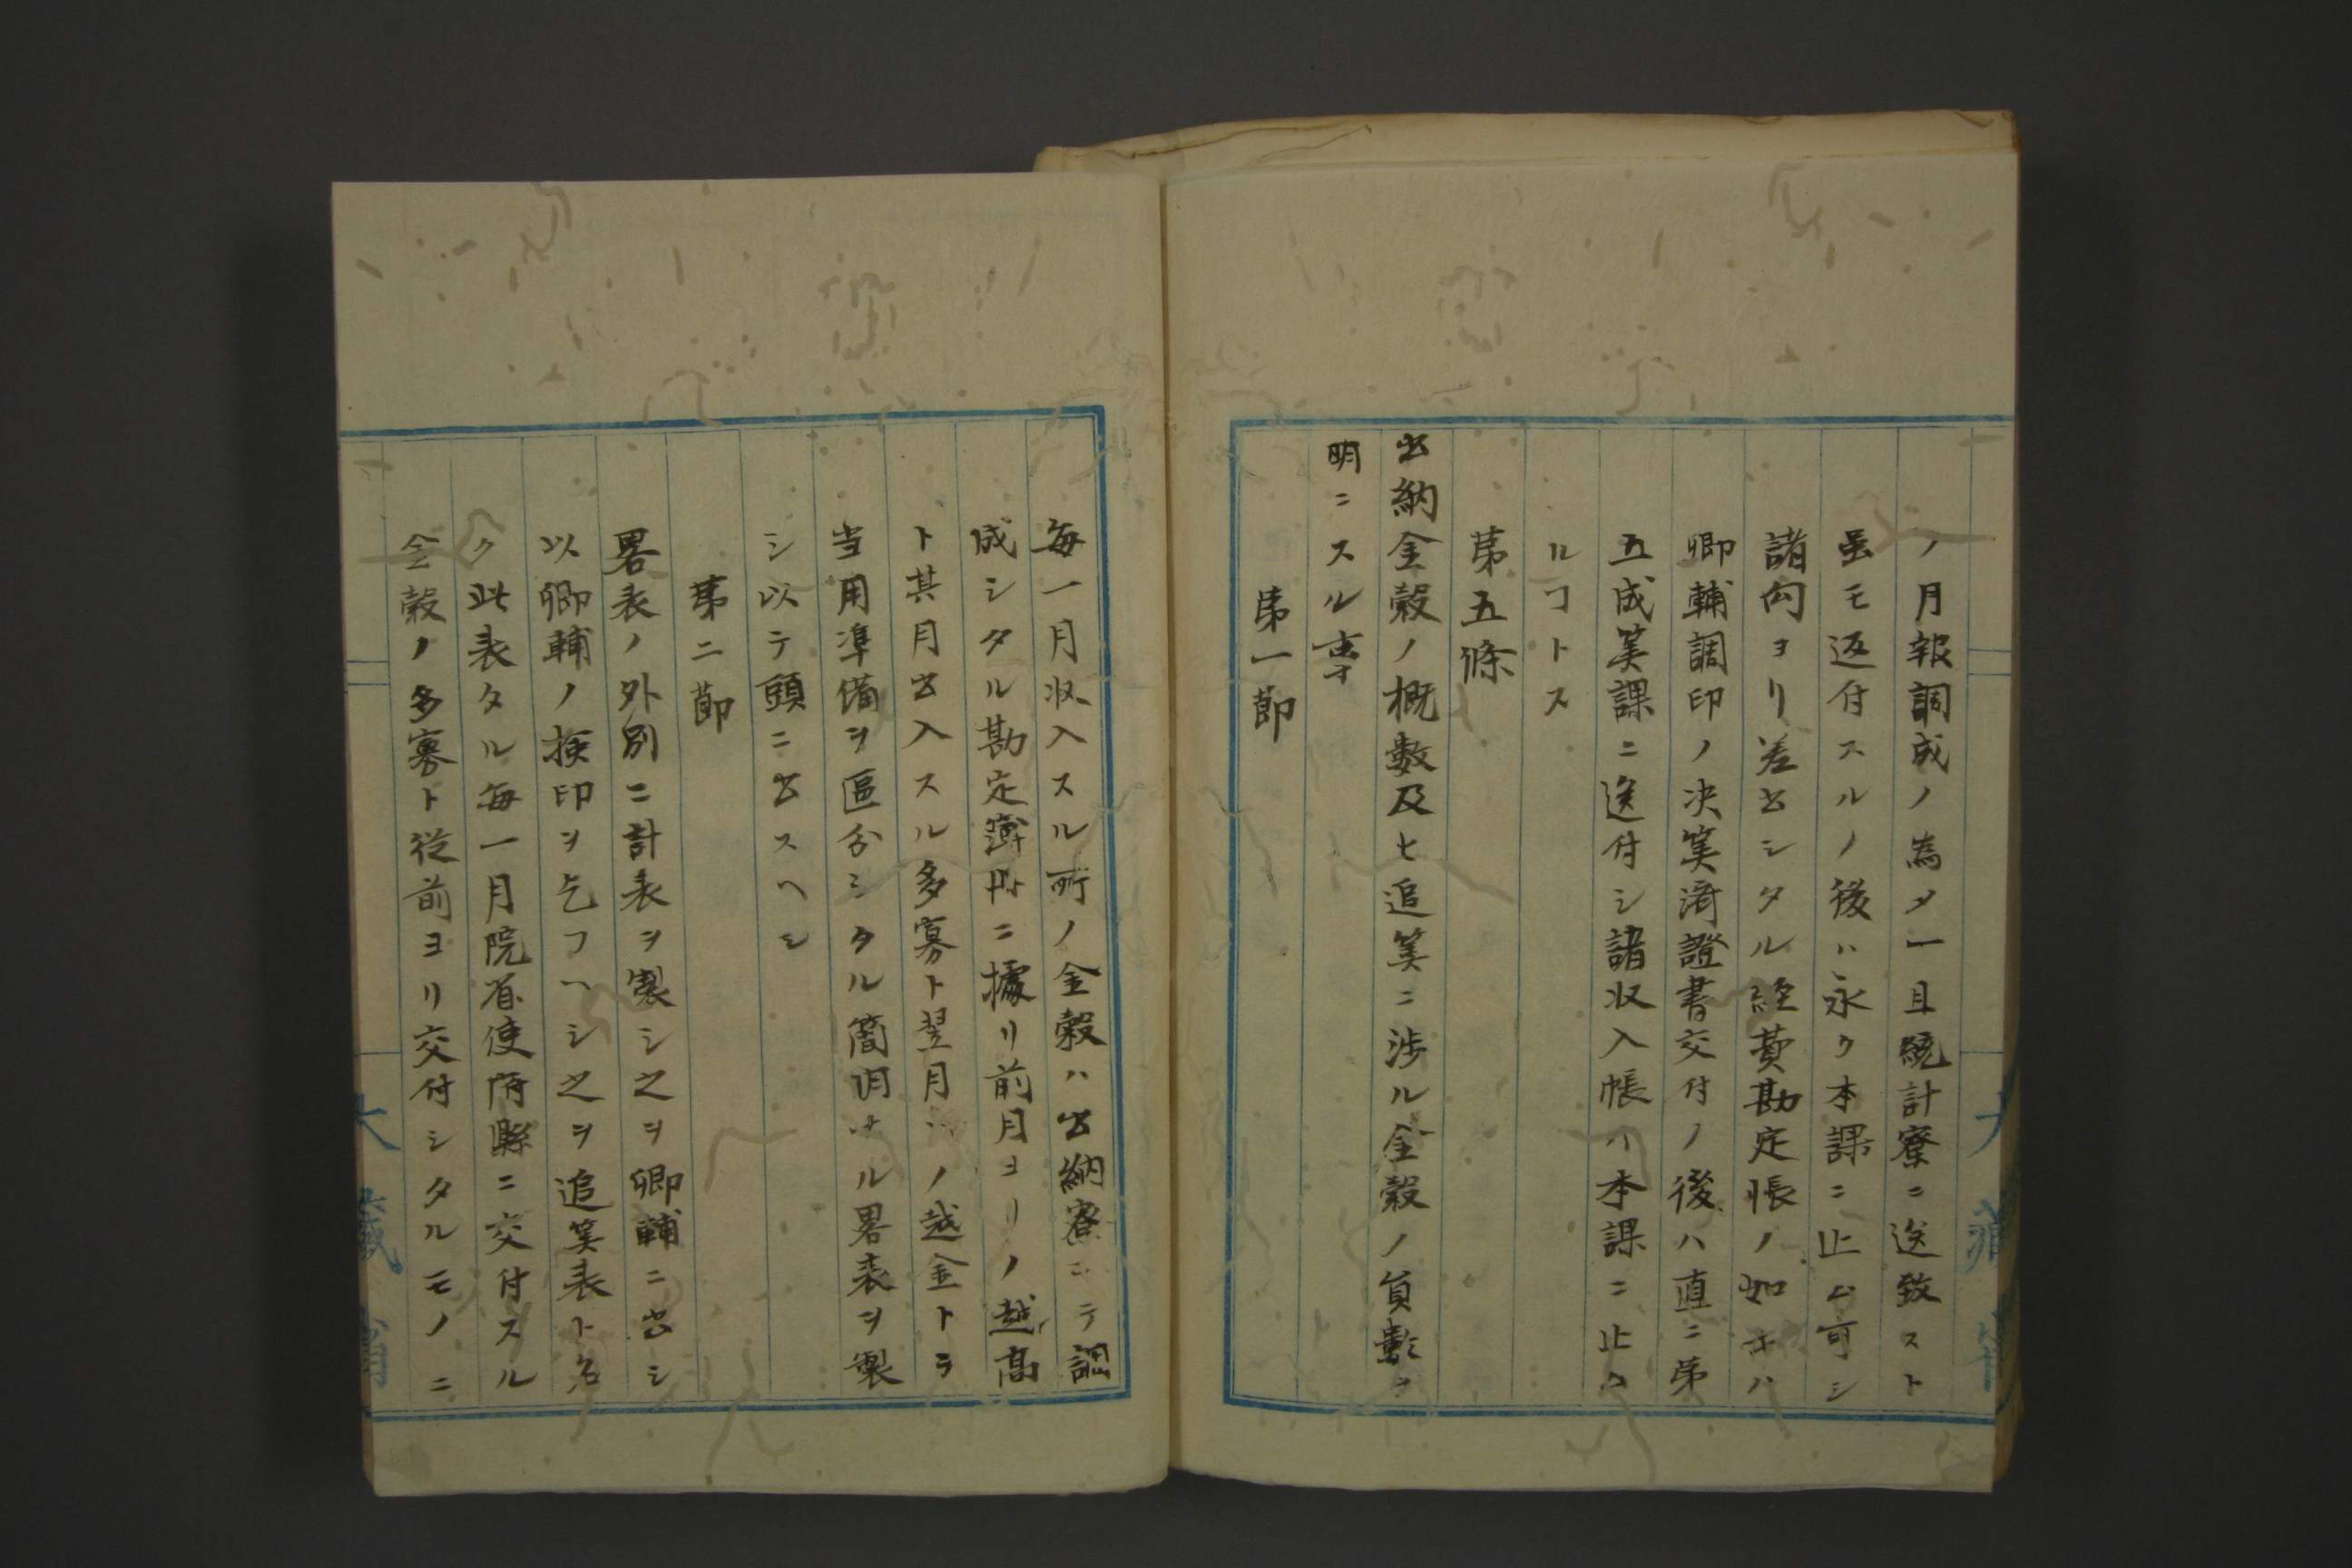 ノ月報調成ノ為メ一旦統計寮ニ送致スト
虽モ返付スルノ後ハ永ク本課ニ止ム可シ
諸向ヨリ差出シタル経費勘定帳ノ如キハ
卿輔調印ノ决筭濟證書交付ノ後ハ直ニ第
五成筭課ニ送付シ諸収入帳ハ本課ニ止ム
ルヿトス
第五條
出納金穀ノ概數及ヒ追筭ニ渉ル金穀ノ負數ヲ
明ニスル事
第一節
毎一月収入スル所ノ金穀ハ出納寮ニテ調
成シタル勘定簿冊ニ據リ前月ヨリノ越高
ト其月出入スル多寡ト翌月ヘノ越金トヲ
当用凖備ヲ區分シタル簡明ナル畧表ヲ製
シ以テ頭ニ出スヘシ
第二節
畧表ノ外別ニ計表ヲ製シ之ヲ卿輔ニ出シ
以卿輔ノ検印ヲ乞フヘシ之ヲ追筭表ト名
ク此表タル毎一月院省使府縣ニ交付スル
金穀ノ多寡ト従前ヨリ交付シタルモノニ
大藏省
大藏省